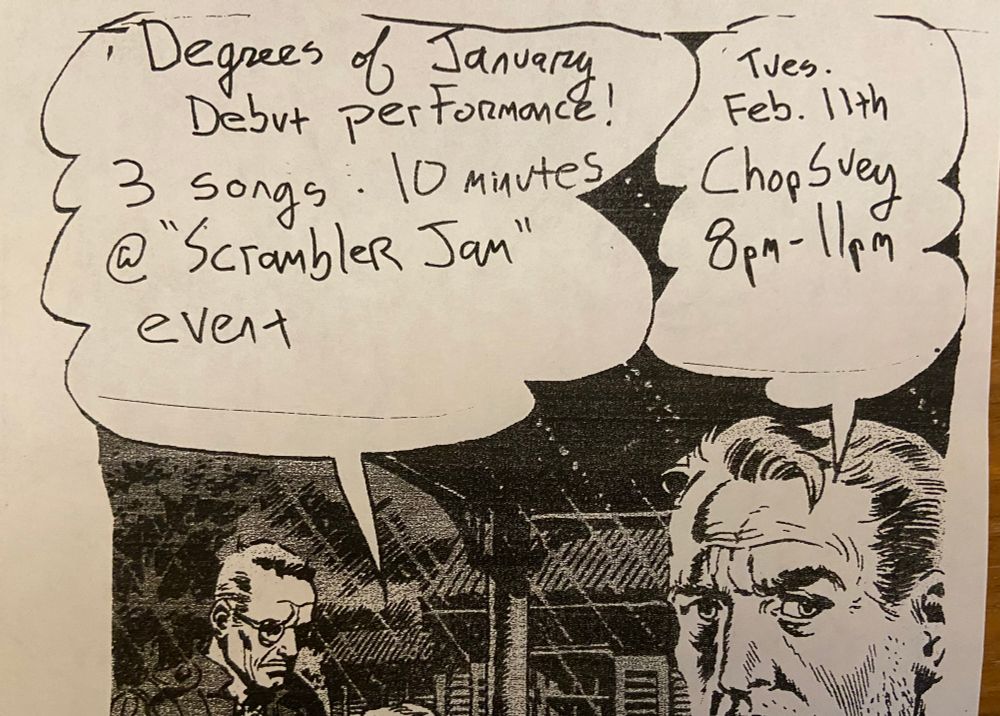 Degrees of January
Debut performance!
3 songs. 10 minutes
@ "Scrambler Jam"
event
Tues.
Feb. 11th
Chop Suey
8pm-11pm